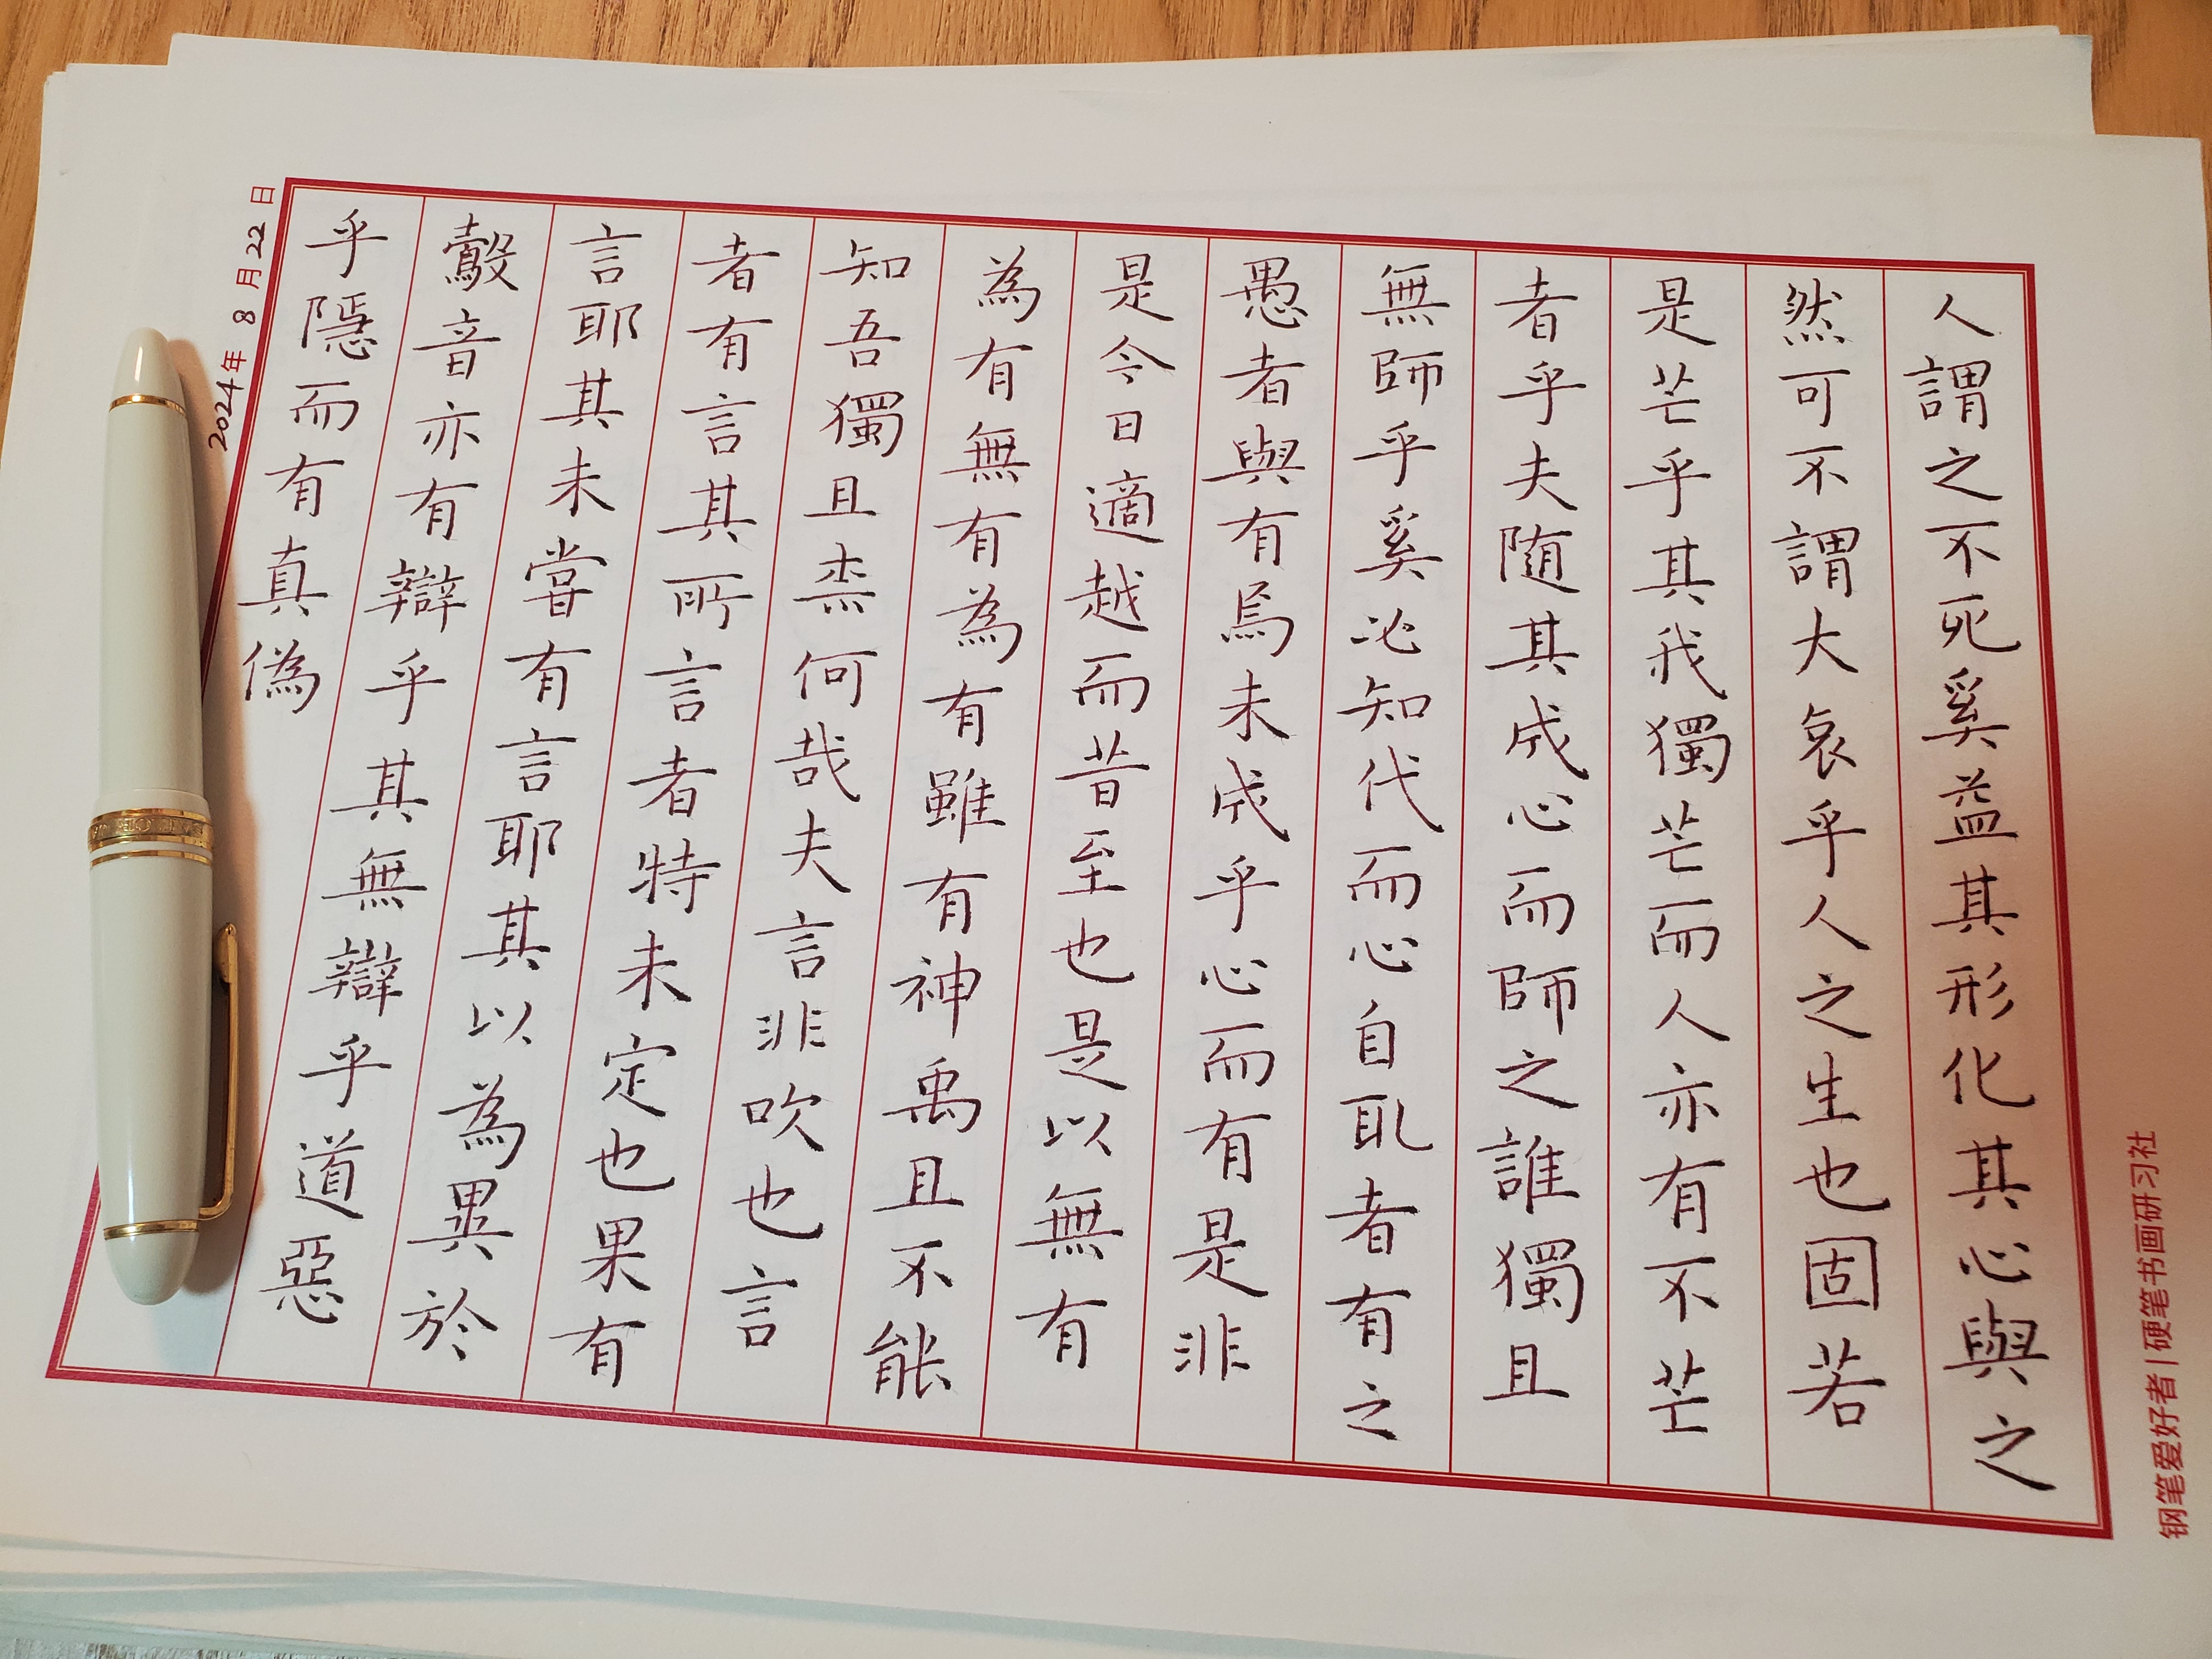 人謂之不死奚益其形化其心與之
然可不謂大哀乎人之生也固若
是芒乎其我獨芒而人亦有不芒
者乎夫随其成心而師之誰獨且
無師乎奚必知代而心自取者有之
愚者與有焉未成乎心而有是非
是今日適越而昔至也是以無有
為有無有為有雖有神禹且不能
知吾獨且柰何哉夫言非吹也言
者有言其所言者特未定也果有
言耶其未嘗有言耶其以為異於
鷇音亦有辯乎其無辯乎道惡
乎隱而有真偽
2024年8月22日
钢笔爱好者|硬笔书画研习社